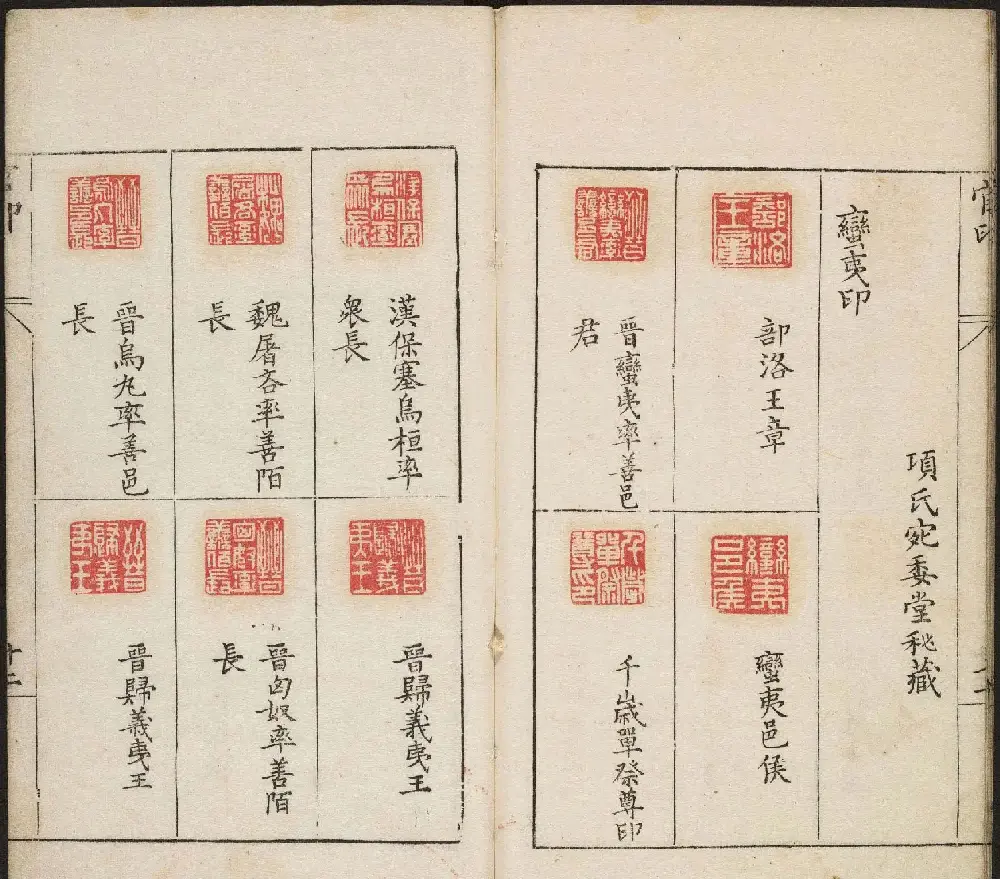 官印
項氏宛委堂秘藏
蠻夷印
部洛王章
蠻夷邑侯
晉蠻夷率善邑
君
千歲單祭尊印
漢保塞烏桓率
衆長
晉歸義夷王
魏屠各率善陌
長
晉匈奴率善陌
長
晉烏丸率善邑
長
晉歸義夷王
十二